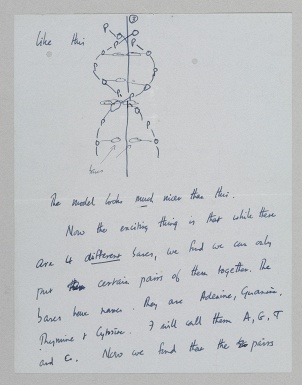 like this
P P P
P P
bases
The model looks much nicer than this.
Now the exciting thing is that while there
are 4 different bases, we find we can only
put certain pairs of them together. The
bases have names. They are Adenine, Guanine,
Thymine & Cytosine. I will call them A, G, T
and C. Now we find that the pairs